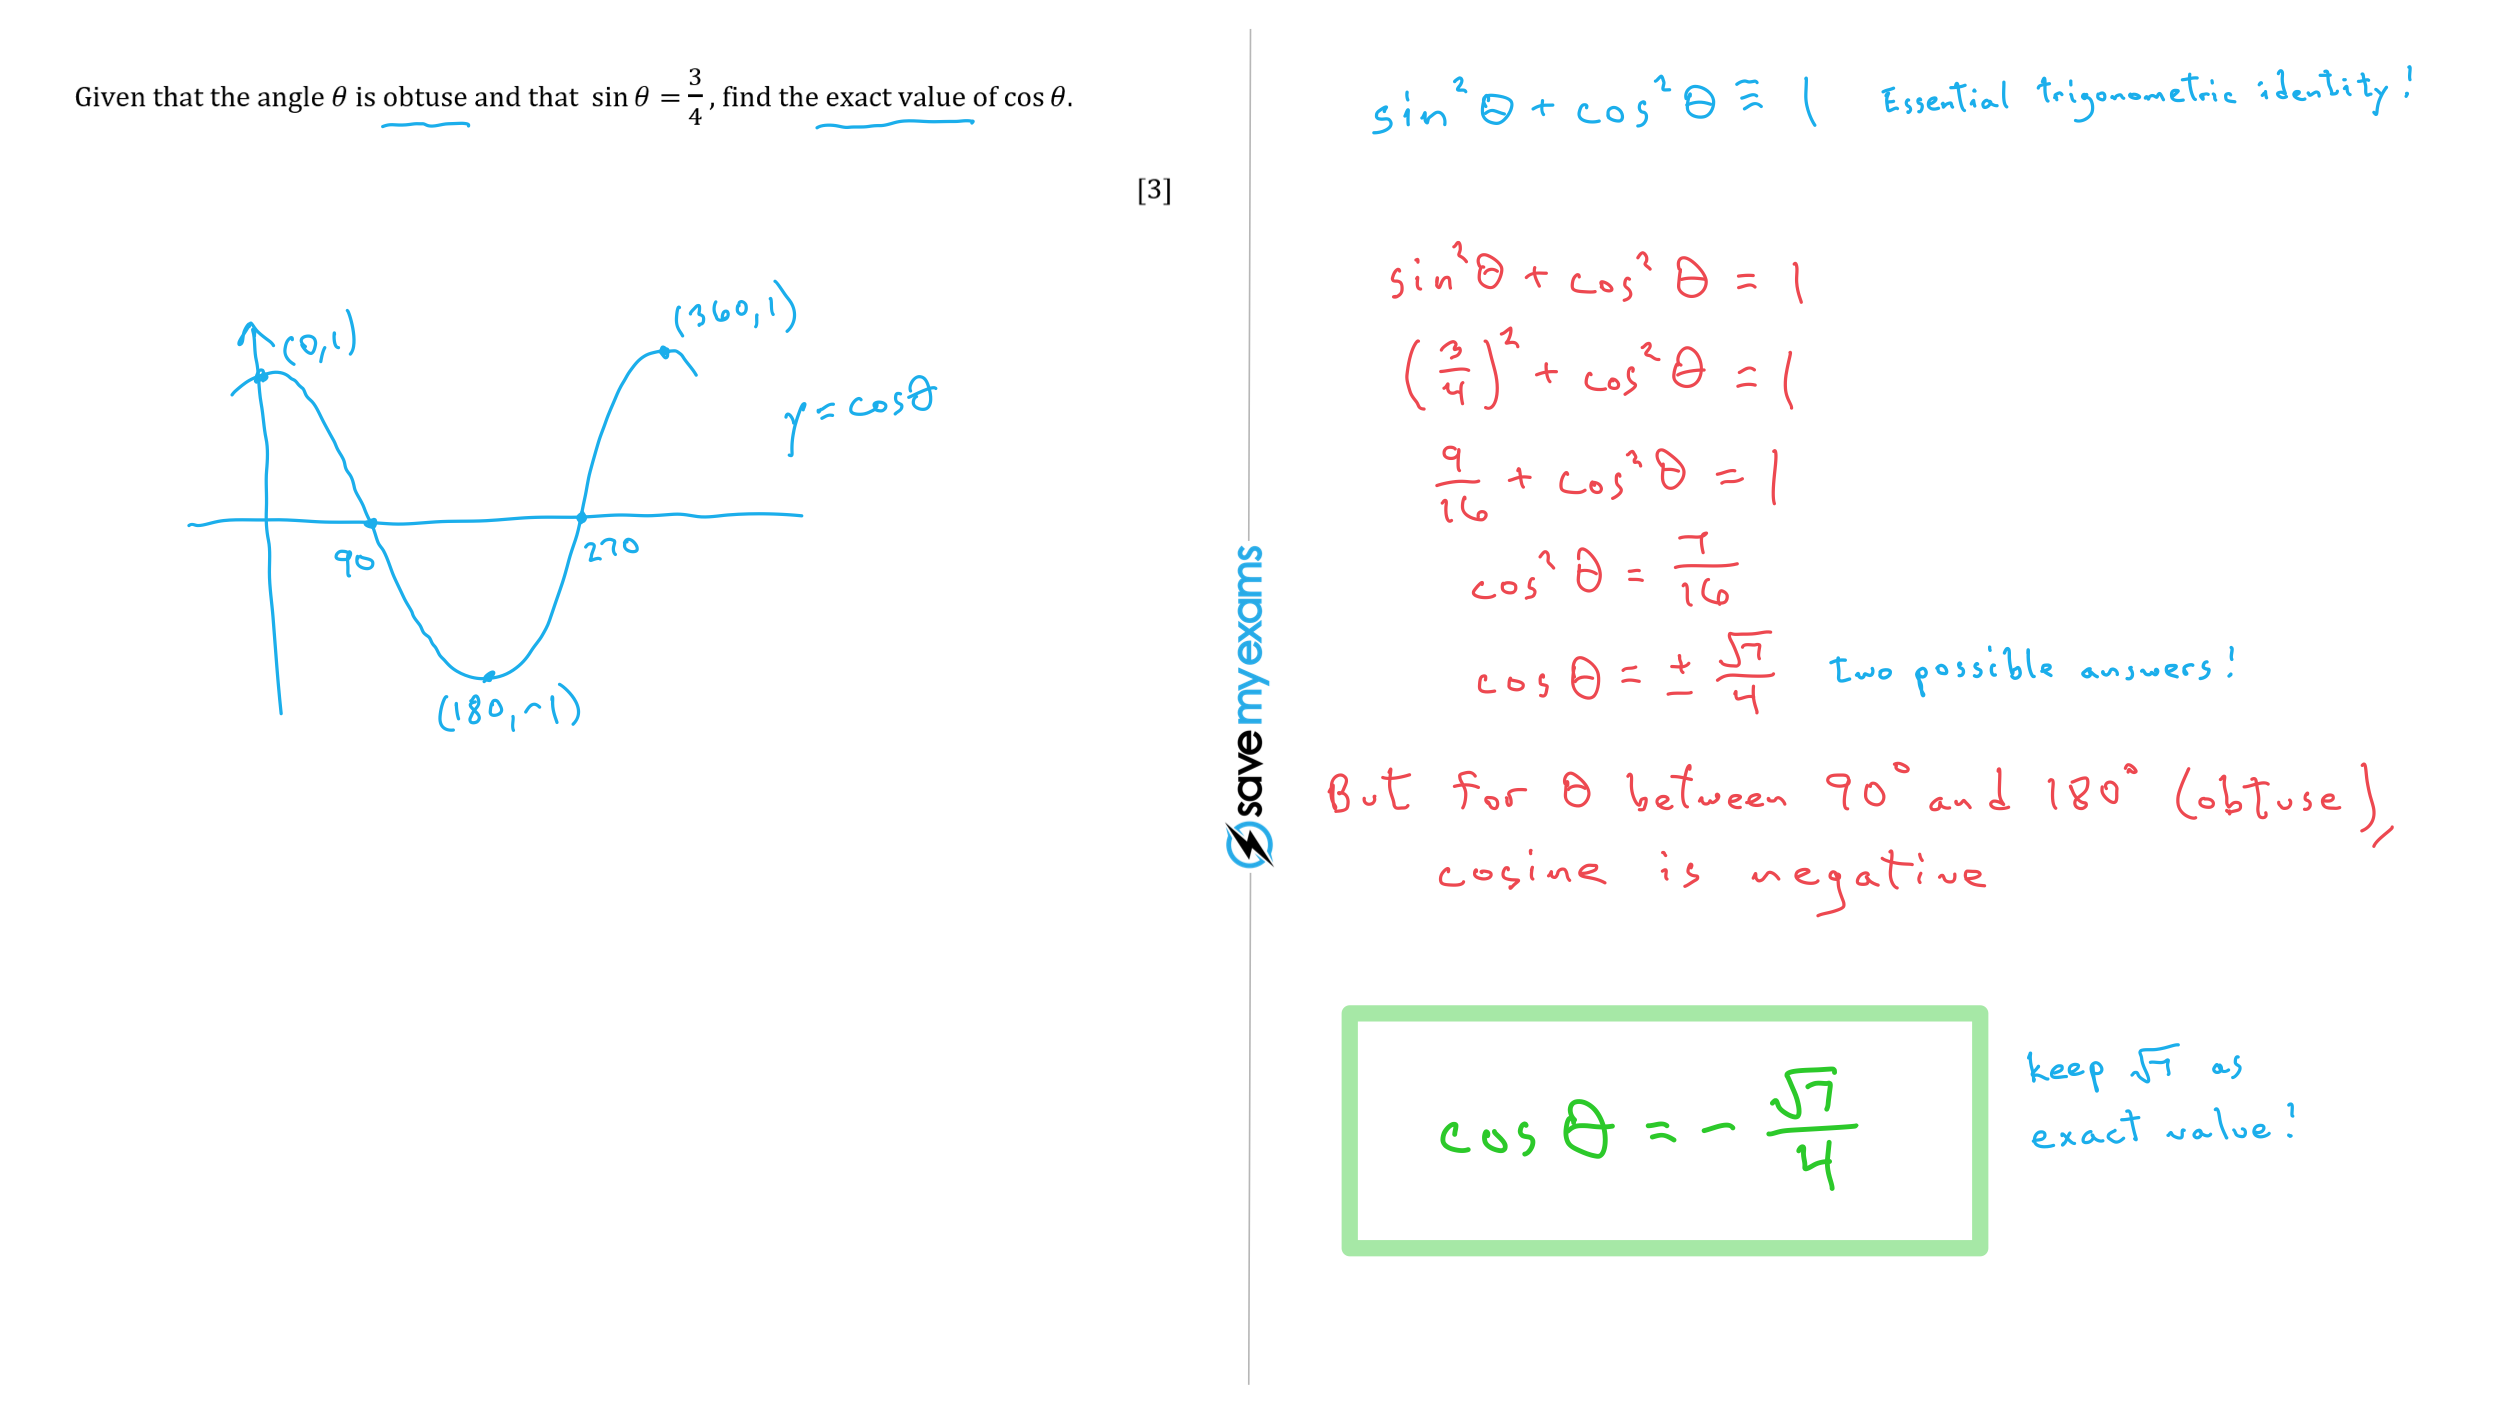 Given that the angle θ is obtuse and that sin θ = 3/4, find the exact value of cos θ.
[3]
(0,1)
(360,1)
y = cos θ
90
270
(180,-1)
save my exams
sin²θ + cos²θ ≡ 1 Essential trigonometric identity!
sin²θ + cos²θ = 1
(3/4)² + cos²θ = 1
9/16 + cos²θ = 1
cos²θ = 7/16
cos θ = ± √7/4 two possible answers!
But for θ between 90° and 180° (obtuse),
cosine is negative
cos θ = - √7/4
keep √7 as
exact value!